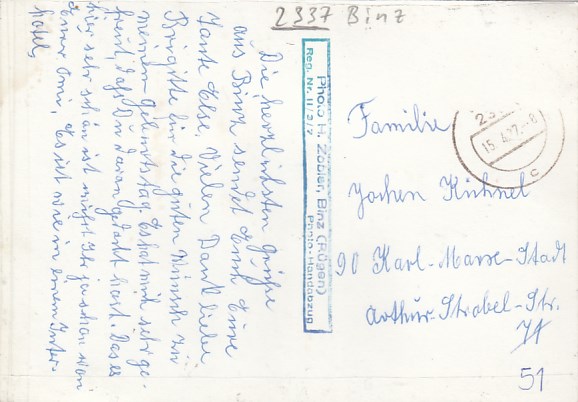 2337 Binz
Die herzlichsten Grüße
aus Binz sendet Euch Eure
Tante Else. Vielen Dank liebe
Birgitte für die guten Wünsche zu
meinem Geburtstag. Es hat mich sehr ge-
freut, daß Du daran gedacht hast. Das es
hier sehr schön ist wißt Ihr ja schon von
Eurer Omi, Es ist wie in einem Inter-
hotel,
Photo H. Zobler, Binz (Rügen)
Reg. Nr. II/3/7 Photo-Handabzug
15. 6. 77.-8
c
Familie
Jochen Kühnel
90 Karl-Marx-Stadt
Arthur-Strobel-Str.
51